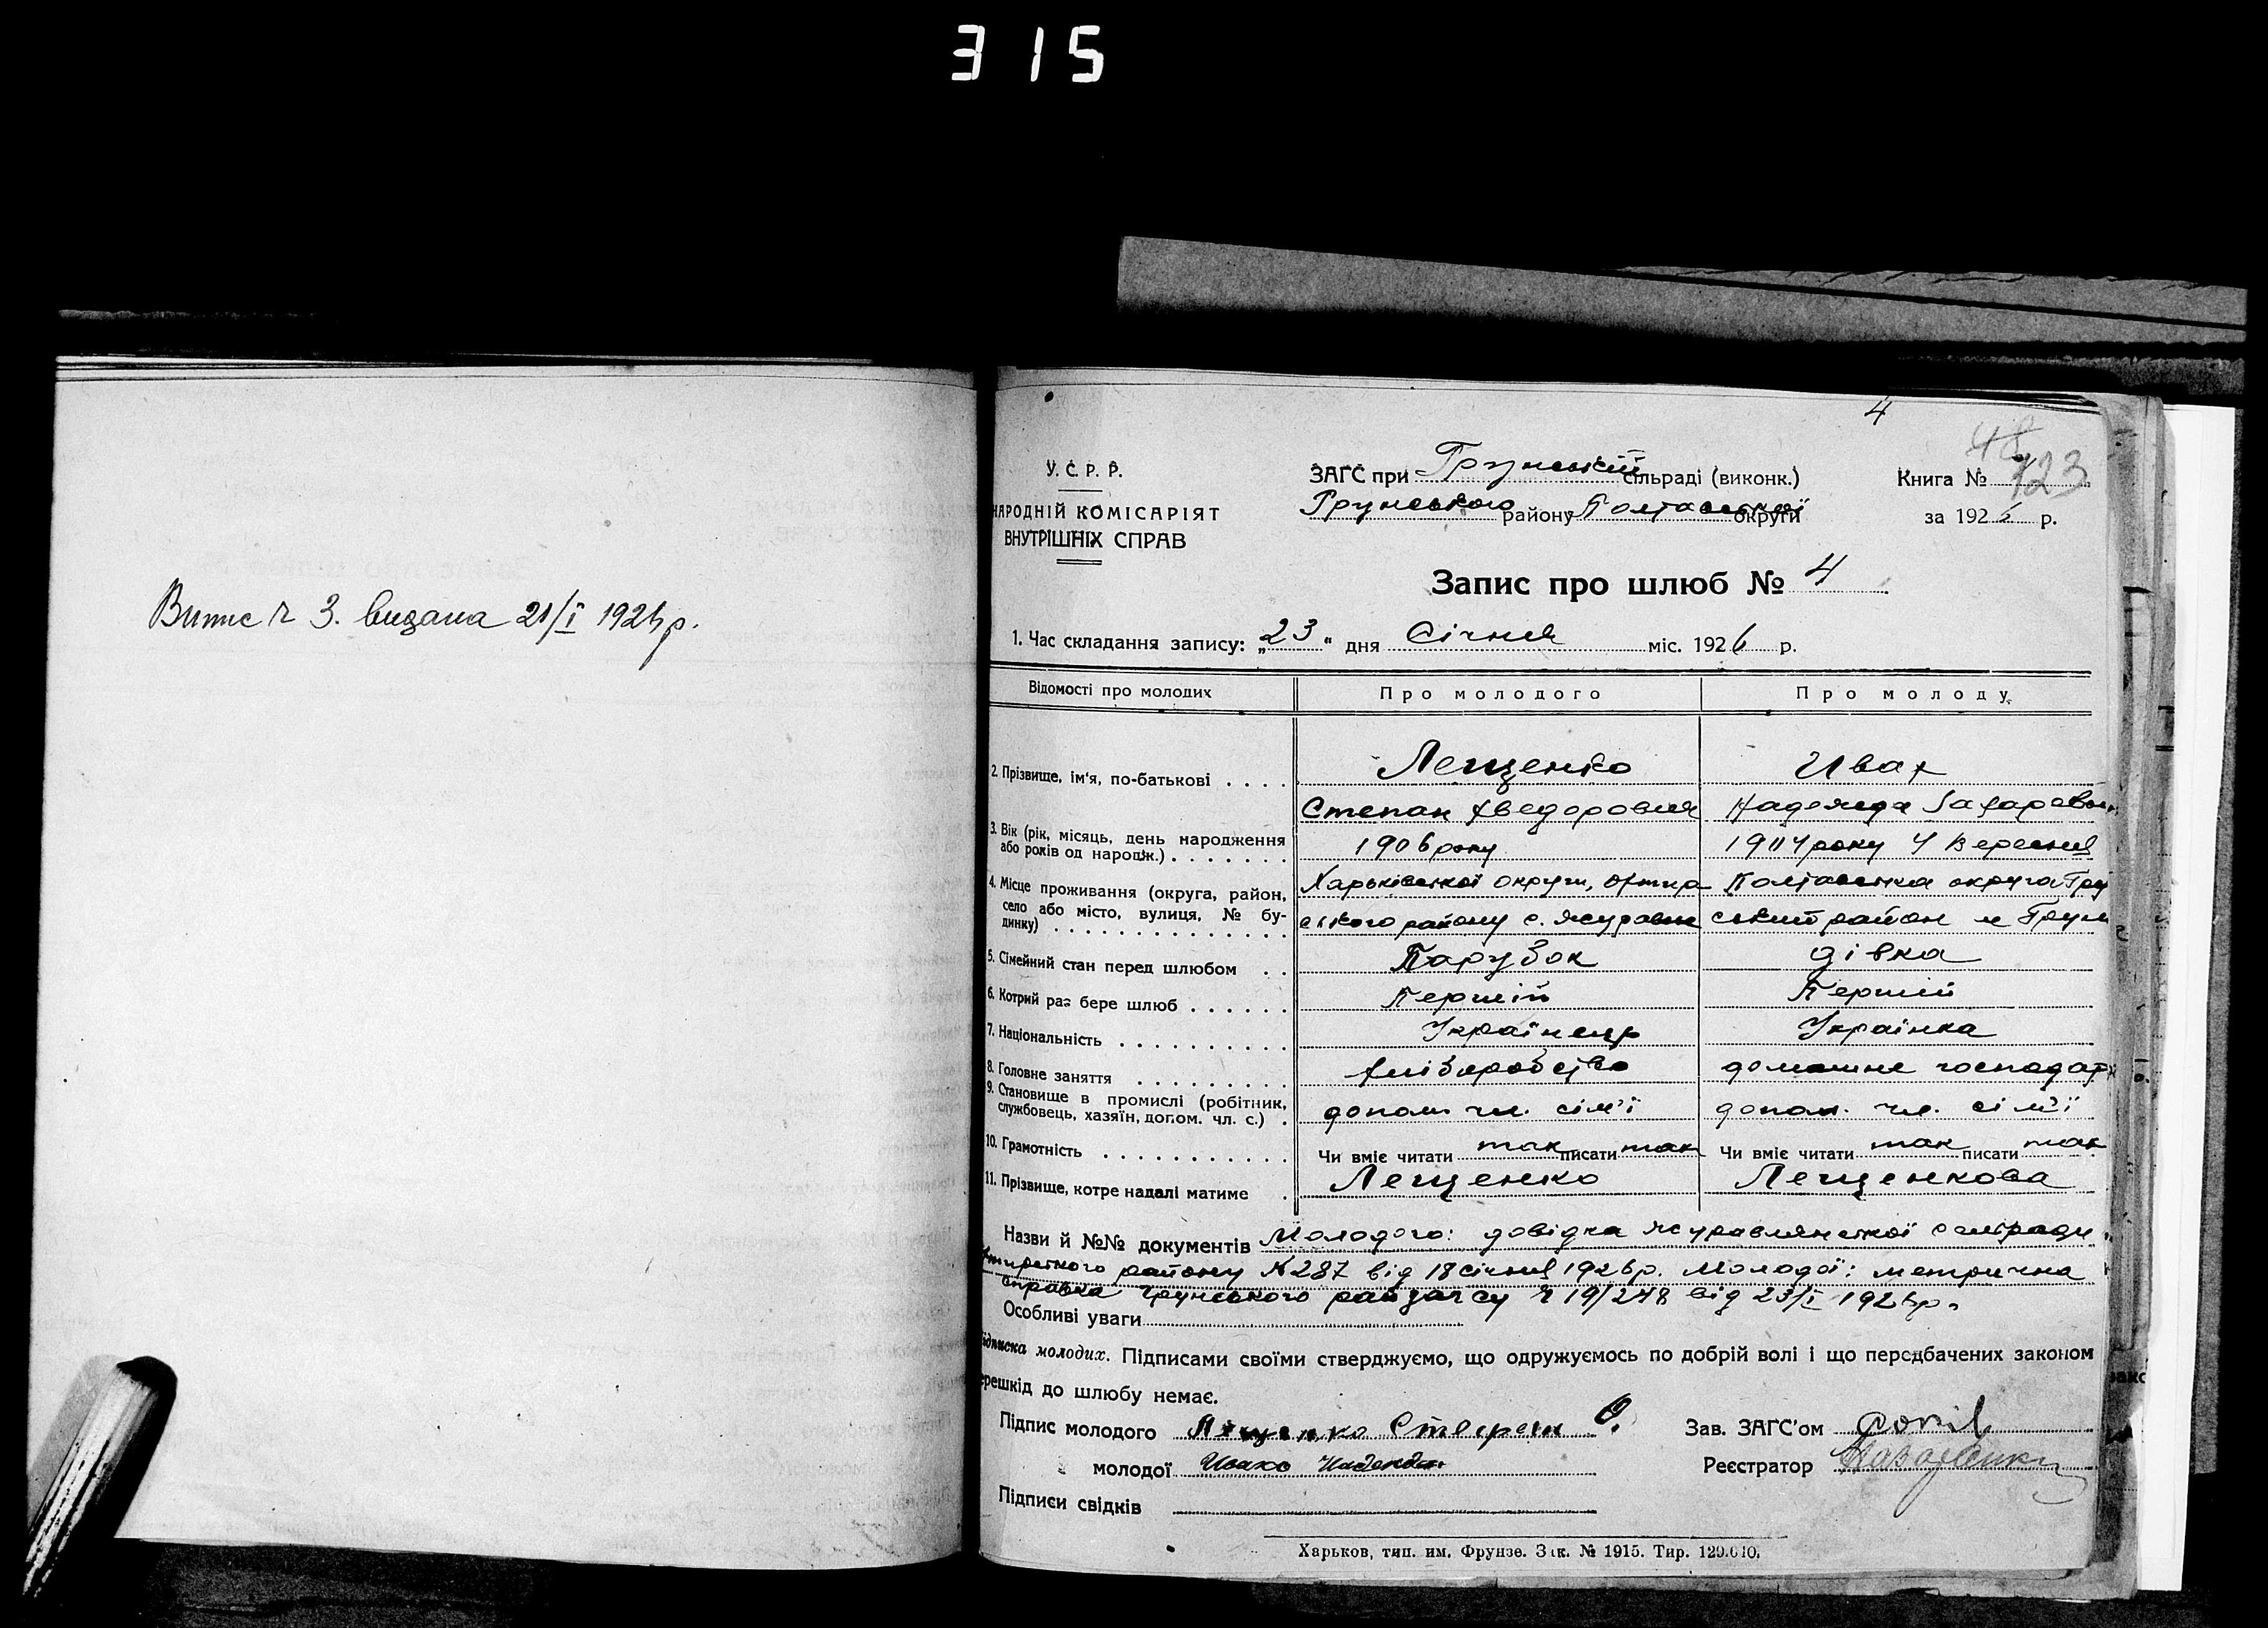 315
Випис ч 3. видана 21/I 1926 р.
4
123
У. С. Р. Р.
НАРОДНІЙ КОМІСАРІЯТ
ВНУТРІШНІХ СПРАВ
ЗАГС при Грунській сільраді (виконк.)
Грунського району Полтавської округи
Книга №
за 1926 р.
Запис про шлюб № 4
1. Час складання запису: „23" дня Січня міс. 1926 р.
Відомості про молодих Про молодого Про молоду
2. Прізвище, ім'я, по-батькові . . . . Лещенко Ивах
Степан Хведорович Надежда
3. Вік (рік, місяць, день народження або років од народж.) . . . . . . . 1906 року 1904 року 4 Вересня
4. Місце проживання (округа, район, село або місто, вулиця, № будинку) . . . Харьківської округи, Охтирського району с. Полтавська округа Грунський район м Грунь
5. Сімейний стан перед шлюбом . . Парубок дівка
6. Котрий раз бере шлюб . . . . . . Першій Першій
7. Національність . . . . . . . . . . Українець Українка
8. Головне заняття . . . . . . . . . хліборобство домашнє господар
9. Становище в промислі (робітник, службовець, хазяїн, допом. чл. с.) . допом. чл. сім'ї допом. чл. сім'ї
10. Грамотність . . . . . . . . . . . Чи вміє читати так писати так Чи вміє читати так писати так
11. Прізвище, котре надалі матиме . Лещенко Лещенкова
Назви й №№ документів Молодого: довідка Журавлянської сельради
Охтирського району № 287 від 18 січня 1926 р. Молодої: метрична
справка Грунського райзагсу ч 19/248 від 23/I 1926 р.
Особливі уваги
Підписка молодих. Підписами своїми стверджуємо, що одружуємось по добрій волі і що передбачених законом
перешкід до шлюбу немає.
Підпис молодого Лещенко Степан Зав. ЗАГС'ом
молодої Ивахо Надежда Реєстратор
Підписи свідків
Харьков, тип. им. Фрунзе. Зак. № 1915. Тир. 120.000.